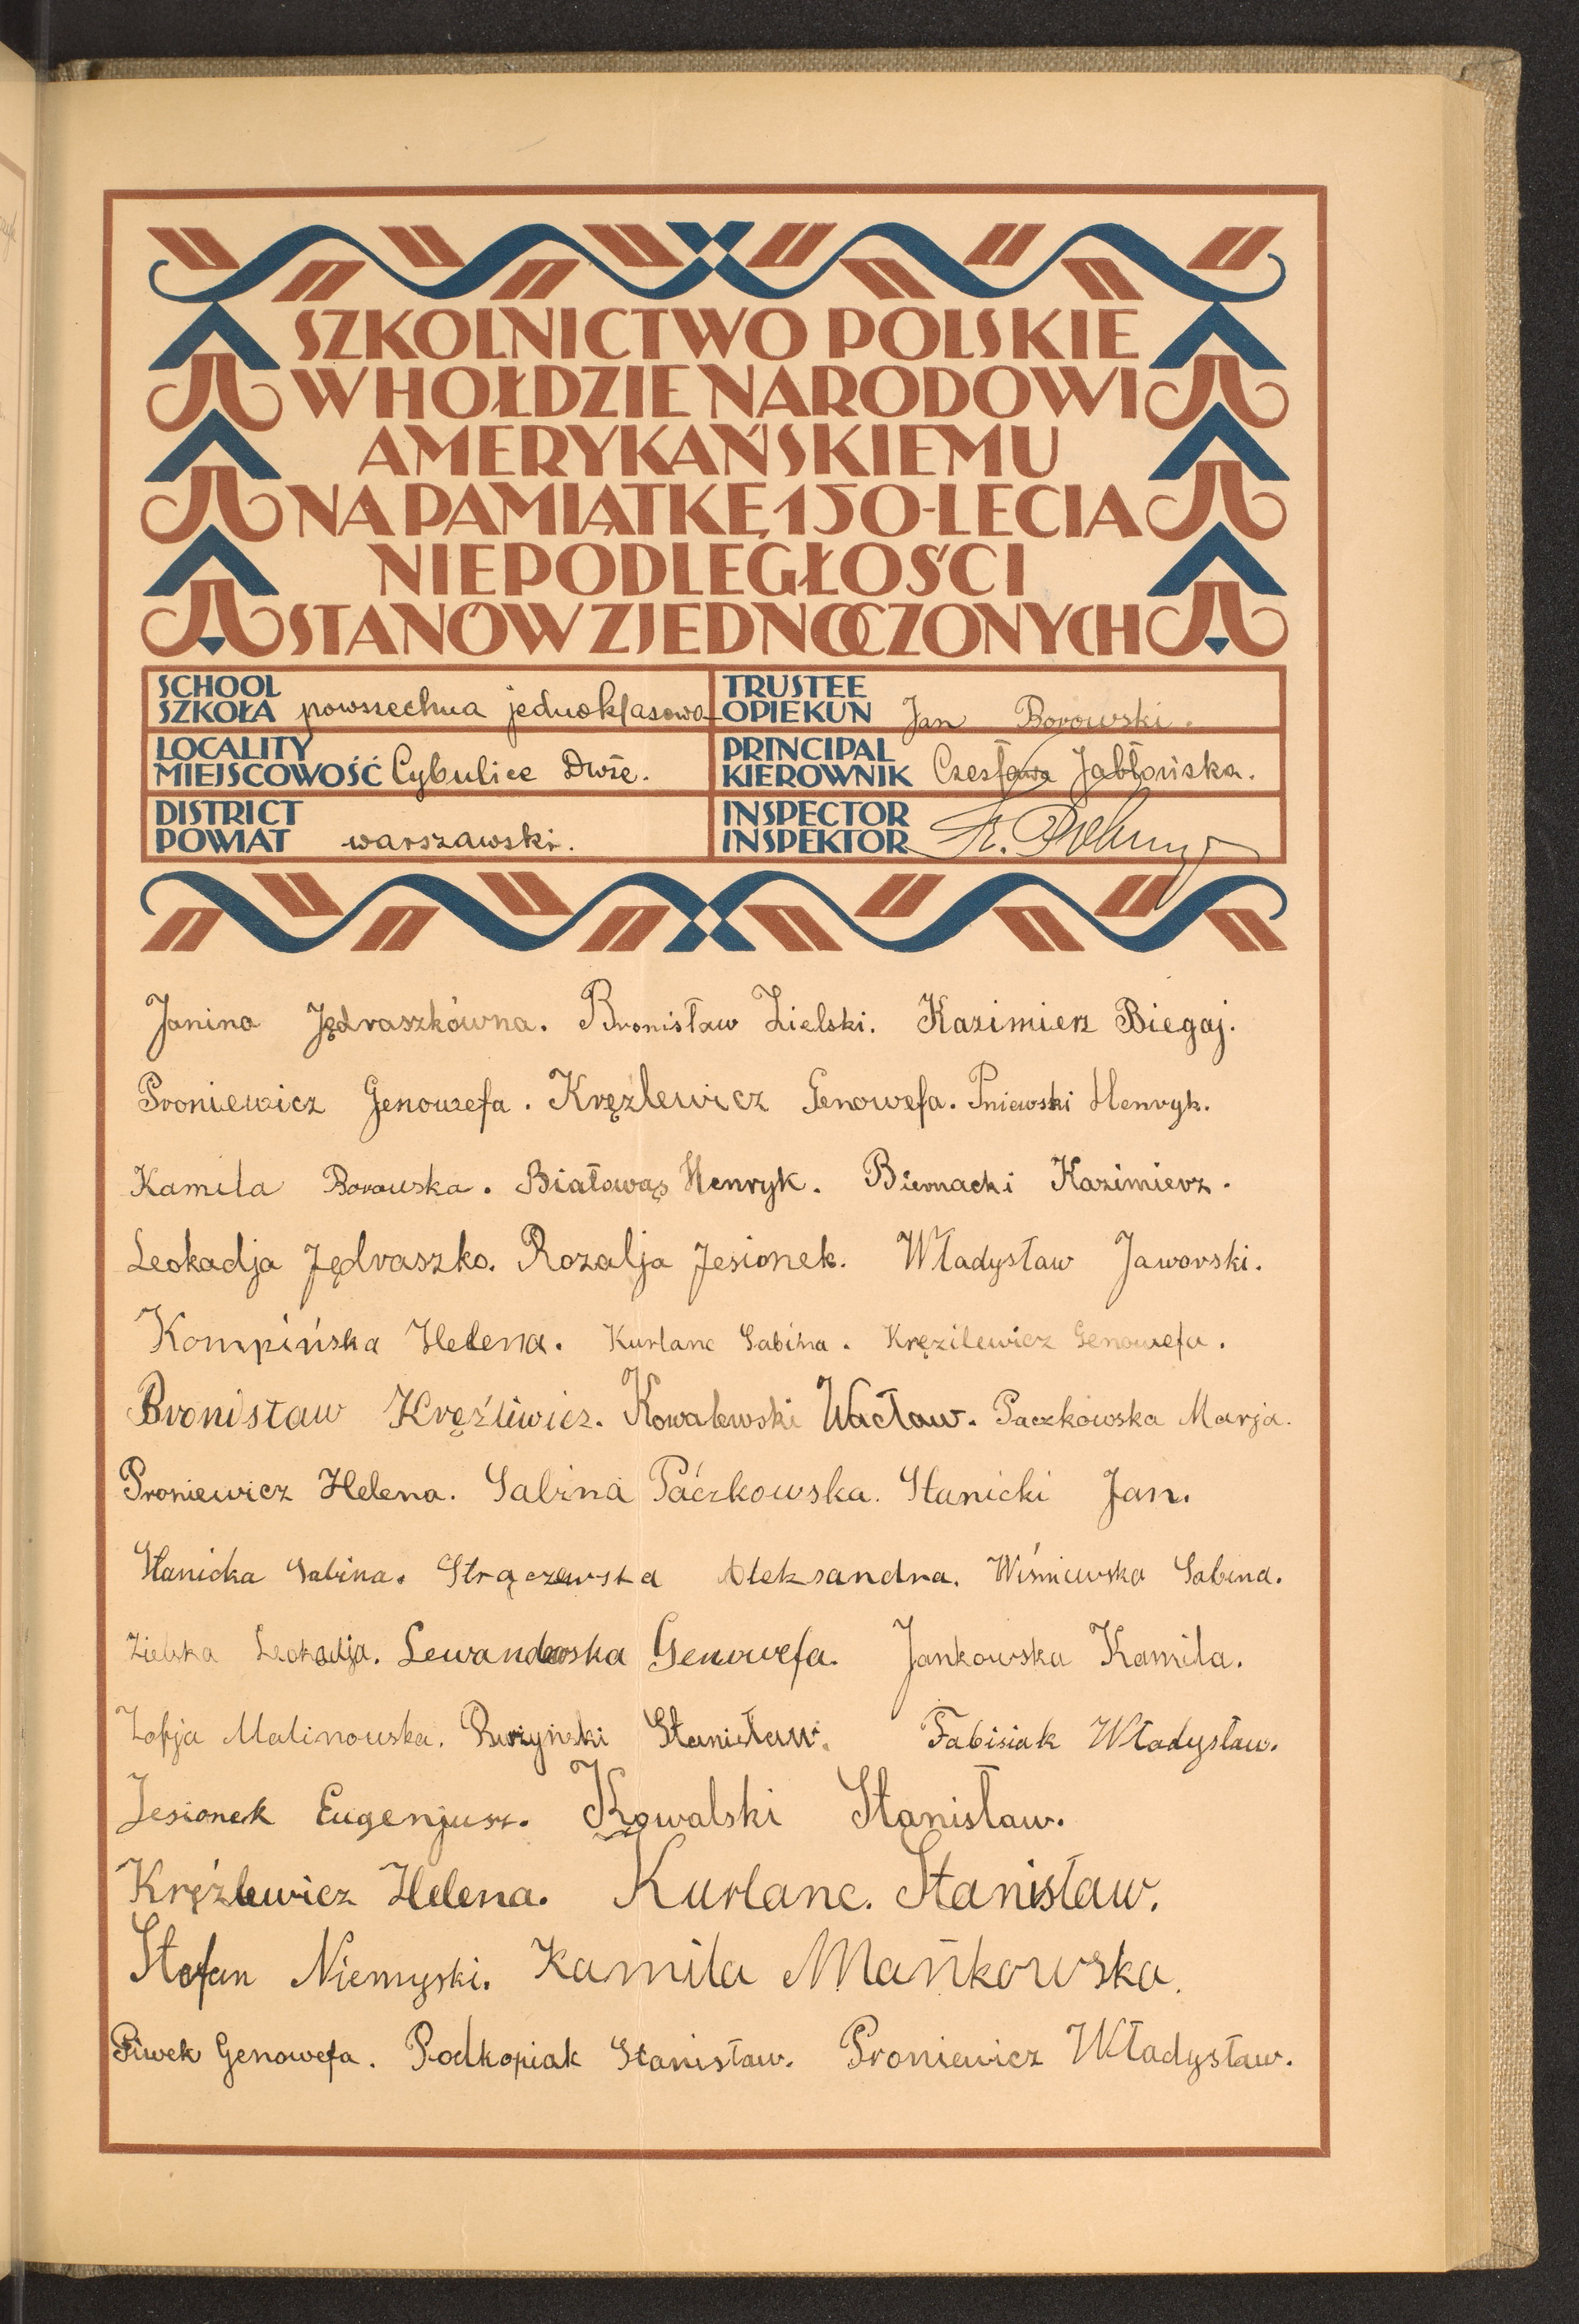 SZKOLNICTWO POLSKIE
W HOŁDZIE NARODOWI
AMERYKAŃSKIEMU
NA PAMIĄTKĘ 150-LECIA
NIEPODLEGŁOŚCI
STANÓW ZJEDNOCZONYCH
SCHOOL
SZKOŁA powszechna jednoklasowa
TRUSTEE
OPIEKUN Jan Borowski.
LOCALITY
MIEJSCOWOŚĆ Cybulice Duże.
PRINCIPAL
KIEROWNIK Czesława Jabłońska.
DISTRICT
POWIAT warszawski.
INSPECTOR
INSPEKTOR
Janina Jędraszkówna. Bronisław Zielski. Kazimierz Biegaj.
Proniewicz Genowefa. Kręźlewicz Genowefa. Pniewski Henryk.
Kamila Borowska. Białowąs Henryk. Biernacki Kazimierz.
Leokadja Jędraszko. Rozalja Jesionek. Władysław Jaworski.
Kompińska Helena. Kurlanc Sabina. Kręzilewicz Genowefa.
Bronisław Kręźliwicz. Kowalewski Wacław. Paczkowska Marja.
Proniewicz Helena. Sabina Pączkowska. Stanicki Jan.
Stanicka Sabina. Strączewska Aleksandra. Wiśniewska Sabina.
Zielska Leokadja. Lewandowska Genowefa. Jankowska Kamila.
Zofja Malinowska. Stanisław. Fabisiak Władysław.
Jesionek Eugenjusz. Kowalski Stanisław.
Kręźlewicz Helena. Kurlanc. Stanisław.
Stefan Niemyski. Kamila Mańkowska.
Piwek Genowefa. Podkopiak Stanisław. Proniewicz Władysław.